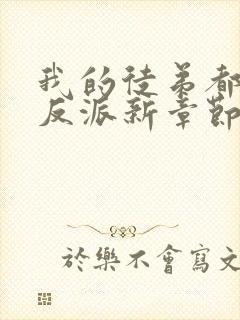 我的徒弟都
反派新章節
於樂不會寫文